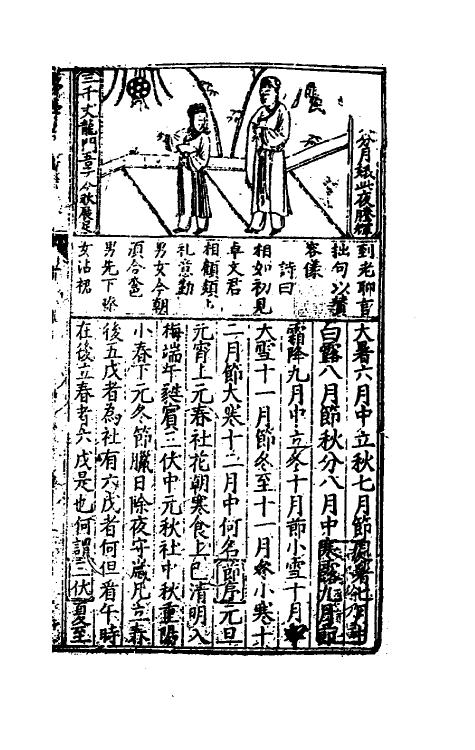 分月娥此夜
三千丈龍門吾子今
到先聊言
拙句以贊
容儀
詩曰
相如初見
卓文君
相顧顒〻
礼意勤
男女今朝
須合卺
男先下
女沾裙
大暑六月中立秋七月節處暑七月中
白露八月節秋分八月中寒露九月節
霜降九月中立冬十月節小雪十月中
大雪十一月節冬至十一月終小寒十
二月節大寒十二月中何名節序元旦
元宵上元春社花朝寒食上巳清明入
梅端午蕤賓三伏中元秋社中秋重陽
小春下元冬節臘日除夜守歲凡立春
後五戊者為社有六戊者何但看午時
在後立春者六戊是也何謂三伏夏至